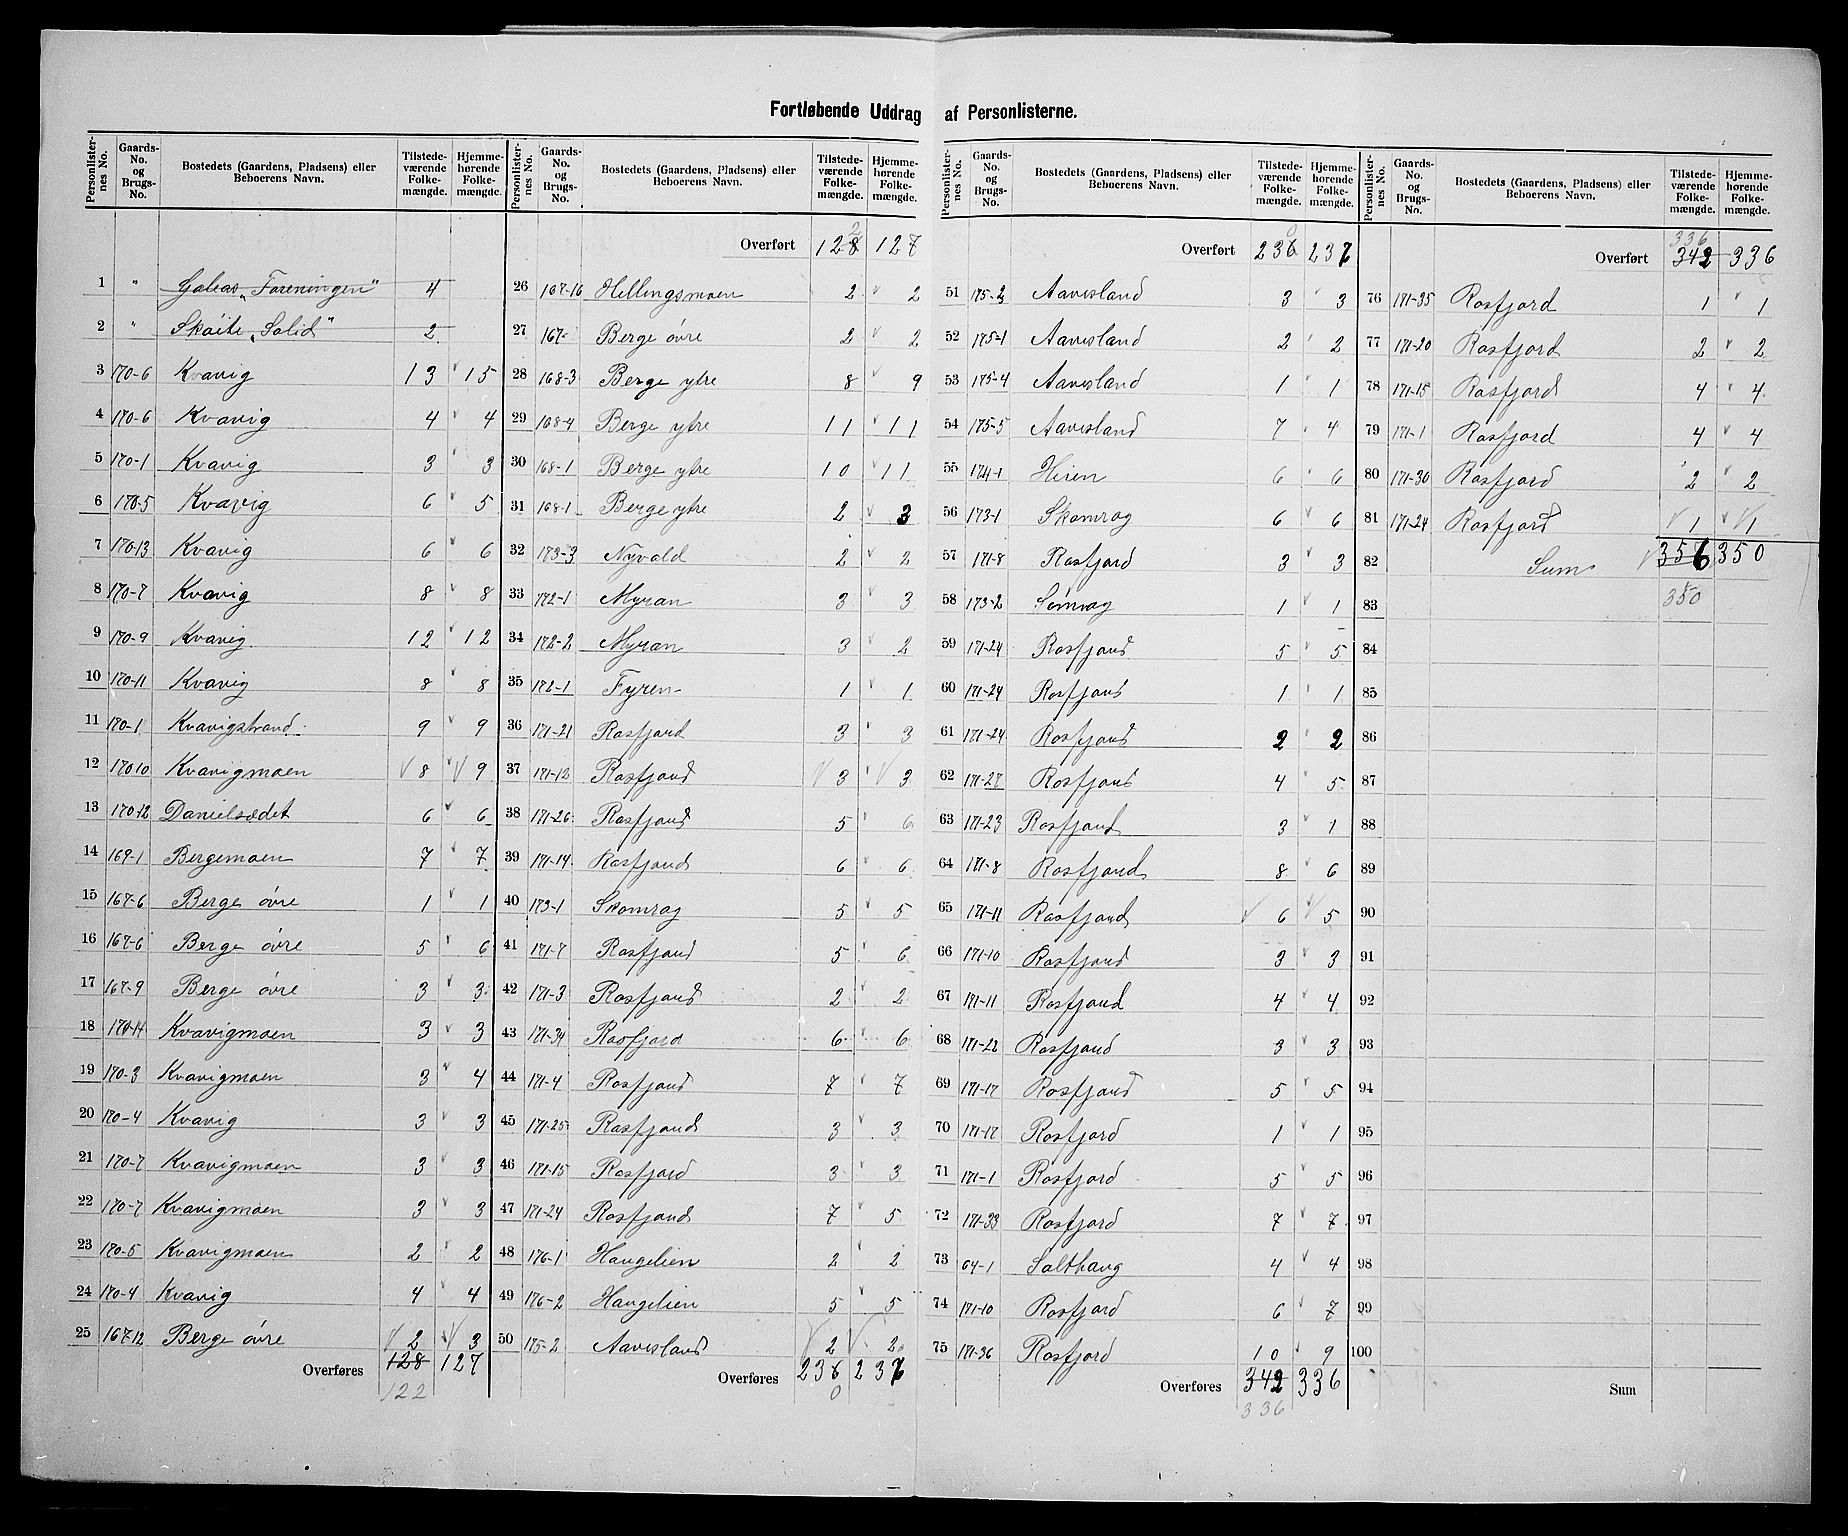 Fortløbende Uddrag af Personlisterne.
Personlister-nes No. Gaards-No. og Brugs-No. Bostedets (Gaardens, Pladsens) eller Beboerens Navn. Tilstede-værende Folke-mængde. Hjemme-hørende Folke-mængde.
1 " Galeas „Foreningen" 4
2 " Skøite „Solid" 2
3 170-6 Kvavig 13 15
4 170-6 Kvavig 4 4
5 170-1 Kvavig 3 3
6 170-5 Kvavig 6 5
7 170-13 Kvavig 6 6
8 170-7 Kvavig 8 8
9 170-9 Kvavig 12 12
10 170-11 Kvavig 8 8
11 170-1 Kvavigstrand 9 9
12 170 10 Kvavigmoen 8 9
13 170-12 Danielsædet 6 6
14 169-1 Bergemoen 7 7
15 167-6 Berge øvre 1 1
16 167-6 Berge øvre 5 6
17 167-9 Berge øvre 3 3
18 170-14 Kvavigmoen 3 3
19 170-3 Kvavigmoen 3 4
20 170-4 Kvavig 3 3
21 170-7 Kvavigmoen 3 3
22 170-7 Kvavigmoen 3 3
23 170-5 Kvavigmoen 2 2
24 170-4 Kvavig 4 4
25 167-12 Berge øvre 2 3
Overføres 128 127
122
Personlister-nes No. Gaards-No. og Brugs-No. Bostedets (Gaardens, Pladsens) eller Beboerens Navn. Tilstede-værende Folke-mængde. Hjemme-hørende Folke-mængde.
2
Overført 128 127
26 167-16 Hellingsmoen 2 2
27 167- Berge øvre 2 2
28 168-3 Berge ytre 8 9
29 168-4 Berge ytre 11 11
30 168-1 Berge ytre 10 11
31 168-1 Berge ytre 2 3
32 173-3 Nyvold 2 2
33 172-1 Myran 3 3
34 172-2 Myran 3 2
35 172-1 Fyren 1 1
36 171-21 Rosfjord 3 3
37 171-12 Rosfjord 3 3
38 171-26 Rosfjord 5 6
39 171-14 Rosfjord 6 6
40 173-1 Skomrag 5 5
41 171-7 Rosfjord 5 6
42 171-3 Rosfjord 2 2
43 171-34 Rosfjord 6 6
44 171-4 Rosfjord 7 7
45 171-25 Rosfjord 3 3
46 171-15 Rosfjord 3 3
47 171-24 Rosfjord 7 5
48 176-1 Haugelien 2 2
49 176-2 Haugelien 5 5
50 175-2 Aavesland 2 2
Overføres 236 237
0
Personlister-nes No. Gaards-No. og Brugs-No. Bostedets (Gaardens, Pladsens) eller Beboerens Navn. Tilstede-værende Folke-mængde. Hjemme-hørende Folke-mængde.
0
Overført 236 237
51 175-2 Aavesland 3 3
52 175-1 Aavesland 2 2
53 175-4 Aavesland 1 1
54 175-5 Aavesland 7 4
55 174-1 Heien 6 6
56 173-1 Skomrag 6 6
57 171-8 Rosfjord 3 3
58 173-2 1 1
59 171-24 Rosfjord 5 5
60 171-24 Rosfjord 1 1
61 171-24 Rosfjord 2 2
62 171-27 Rosfjord 4 5
63 171-23 Rosfjord 3 1
64 171-8 Rosfjord 8 6
65 171-11 Rosfjord 6 5
66 171-10 Rosfjord 3 3
67 171-11 Rosfjord 4 4
68 171-22 Rosfjord 3 3
69 171-17 Rosfjord 5 5
70 171-17 Rosfjord 1 1
71 171-1 Rosfjord 5 5
72 171-33 Rosfjord 7 7
73 64-1 Salthaug 4 4
74 171-10 Rosfjord 6 7
75 171-36 Rosfjord 10 9
Overføres 342 336
336
Personlister-nes No. Gaards-No. og Brugs-No. Bostedets (Gaardens, Pladsens) eller Beboerens Navn. Tilstede-værende Folke-mængde. Hjemme-hørende Folke-mængde.
336
Overført 342 336
76 171-35 Rosfjord 1 1
77 171-20 Rosfjord 2 2
78 171-15 Rosfjord 4 4
79 171-1 Rosfjord 4 4
80 171-30 Rosfjord 2 2
81 171-24 Rosfjord 1 1
82 Sum 356 350
83 350
84
85
86
87
88
89
90
91
92
93
94
95
96
97
98
99
100
Sum